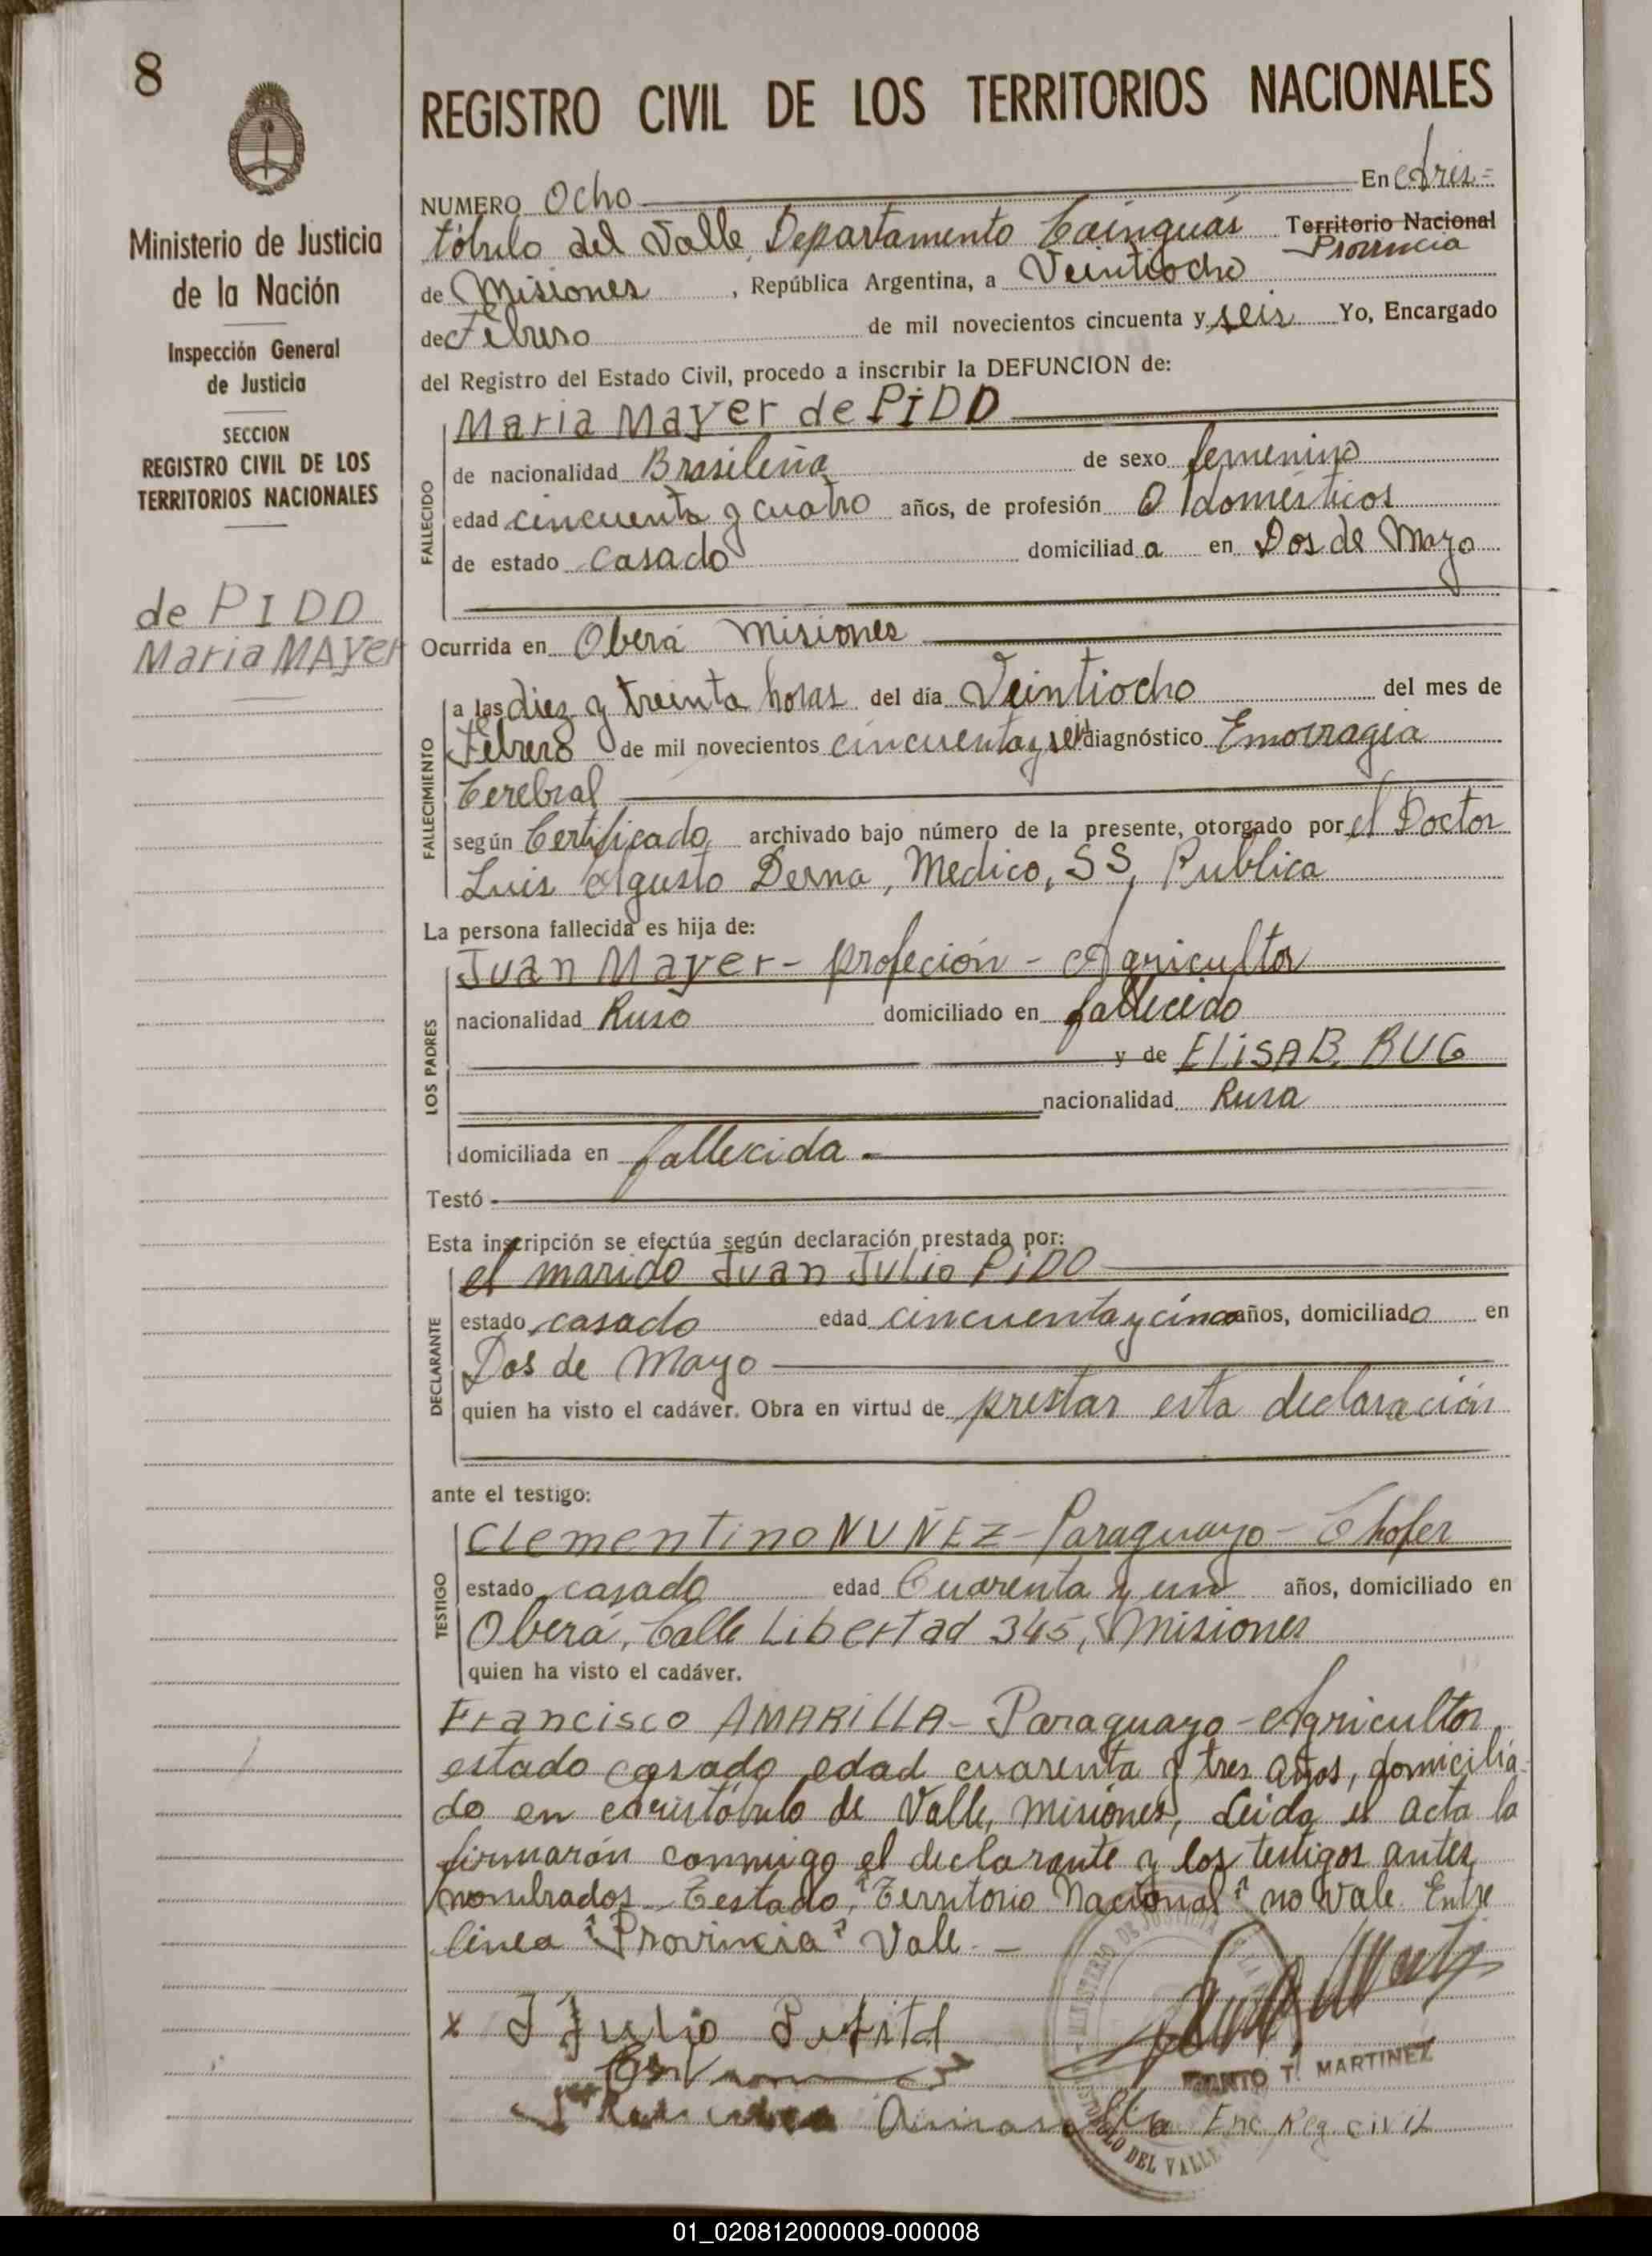 8
REGISTRO CIVIL DE LOS TERRITORIOS NACIONALES
Ministerio de Justicia
de la Nación
Inspección General
de Justicia
SECCION
REGISTRO CIVIL DE LOS
TERRITORIOS NACIONALES
de PIDD
Maria MAYer
NUMERO Ocho En Cris=
tóbulo del Valle, Departamento Cainguás Territorio Nacional
Provincia
de Misiones , República Argentina, a Veintiocho
de Febrero de mil novecientos cincuenta y seis Yo, Encargado
del Registro del Estado Civil, procedo a inscribir la DEFUNCION de:
FALLECIDO
Maria Mayer de PiDD
de nacionalidad Brasileña de sexo femenino
edad cincuenta y cuatro años, de profesión Q domésticos
de estado casado domiciliad a en Dos de Mayo
Ocurrida en Oberá Misiones
FALLECIMIENTO
a las diez y treinta horas del día Veintiocho del mes de
Febrero de mil novecientos cincuenta y seis diagnóstico Emorragia
Cerebral
según Certificado archivado bajo número de la presente, otorgado por el Doctor
Luis Agusto Derna, Medico, SS, Publica
La persona fallecida es hija de:
LOS PADRES
Juan Mayer - profeción - Agricultor
nacionalidad Ruso domiciliado en fallecido
y de ELiSAB. RUG
nacionalidad Rusa
domiciliada en fallecida.-
Testó
Esta inscripción se efectúa según declaración prestada por:
DECLARANTE
el marido Juan Julio PiDD
estado casado edad cincuenta y cinco años, domiciliado en
Dos de Mayo
quien ha visto el cadáver. Obra en virtud de prestar esta declaración
ante el testigo:
TESTIGO
Clementino NUÑEZ - Paraguayo - Chofer
estado casado edad Cuarenta y un años, domiciliado en
Oberá, Calle Libertad 345, Misiones
quien ha visto el cadáver.
Francisco AMARiLLA - Paraguayo - Agricultor
estado casado edad cuarenta y tres años, domicilia-
do en Cristóbulo de Valle, Misiones, Leida el acta la
firmarón conmigo el declarante y los testigos antes
nombrados. Testado, "Territorio Nacional" no vale. Entre
linea "Provincia" Vale. -
x J Julio
MINISTERIO DE JUSTICIA
T. MARTINEZ
Enc Reg civil
DEL VALLE
01_020812000009-000008